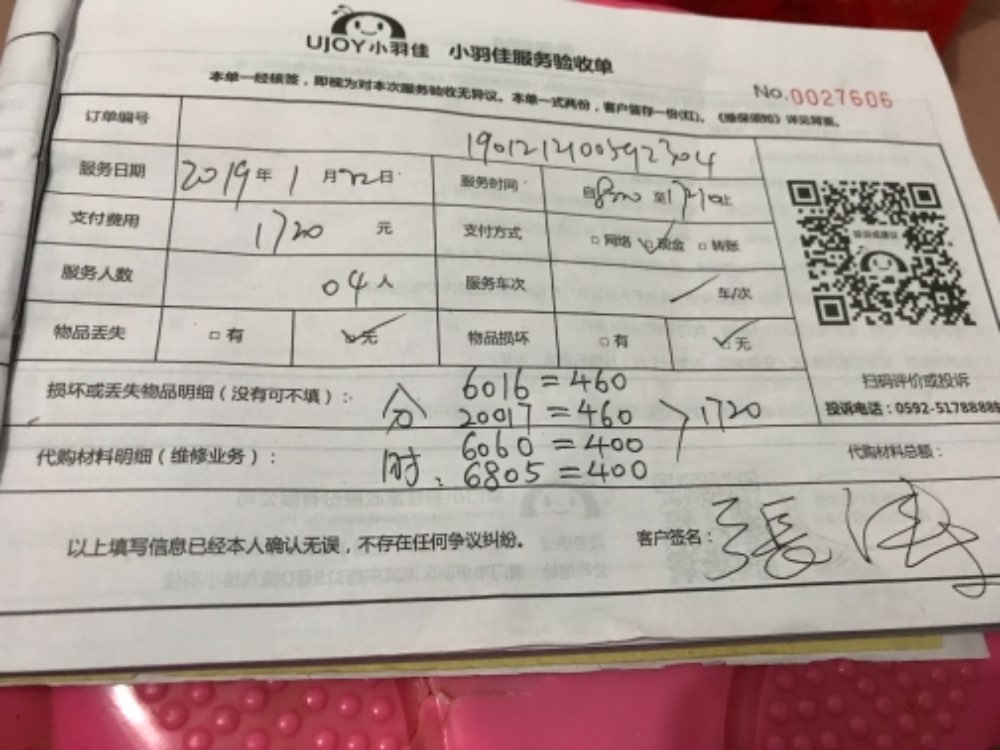 UJOY小羽佳 小羽佳服务验收单
本单一经核签，即视为对本次服务验收无异议。本单一式两份，客户留存一份(红)。《维保须知》详见背面。
No.0027606
订单编号 1901212100592304
服务日期 2019年1月22日 服务时间 自 至 止
支付费用 1720 元 支付方式 □网络 ☑现金 □转账
服务人数 04人 服务车次 / 车/次
物品丢失 □有 ☑无 物品损坏 □有 ☑无
投诉或建议
扫码评价或投诉
投诉电话：0592-5178888
损坏或丢失物品明细（没有可不填）：
分 6016=460
20017=460 1720
代购材料明细（维修业务）： 6060=400 代购材料总额：
时：6805=400
以上填写信息已经本人确认无误，不存在任何争议纠纷。 客户签名：張